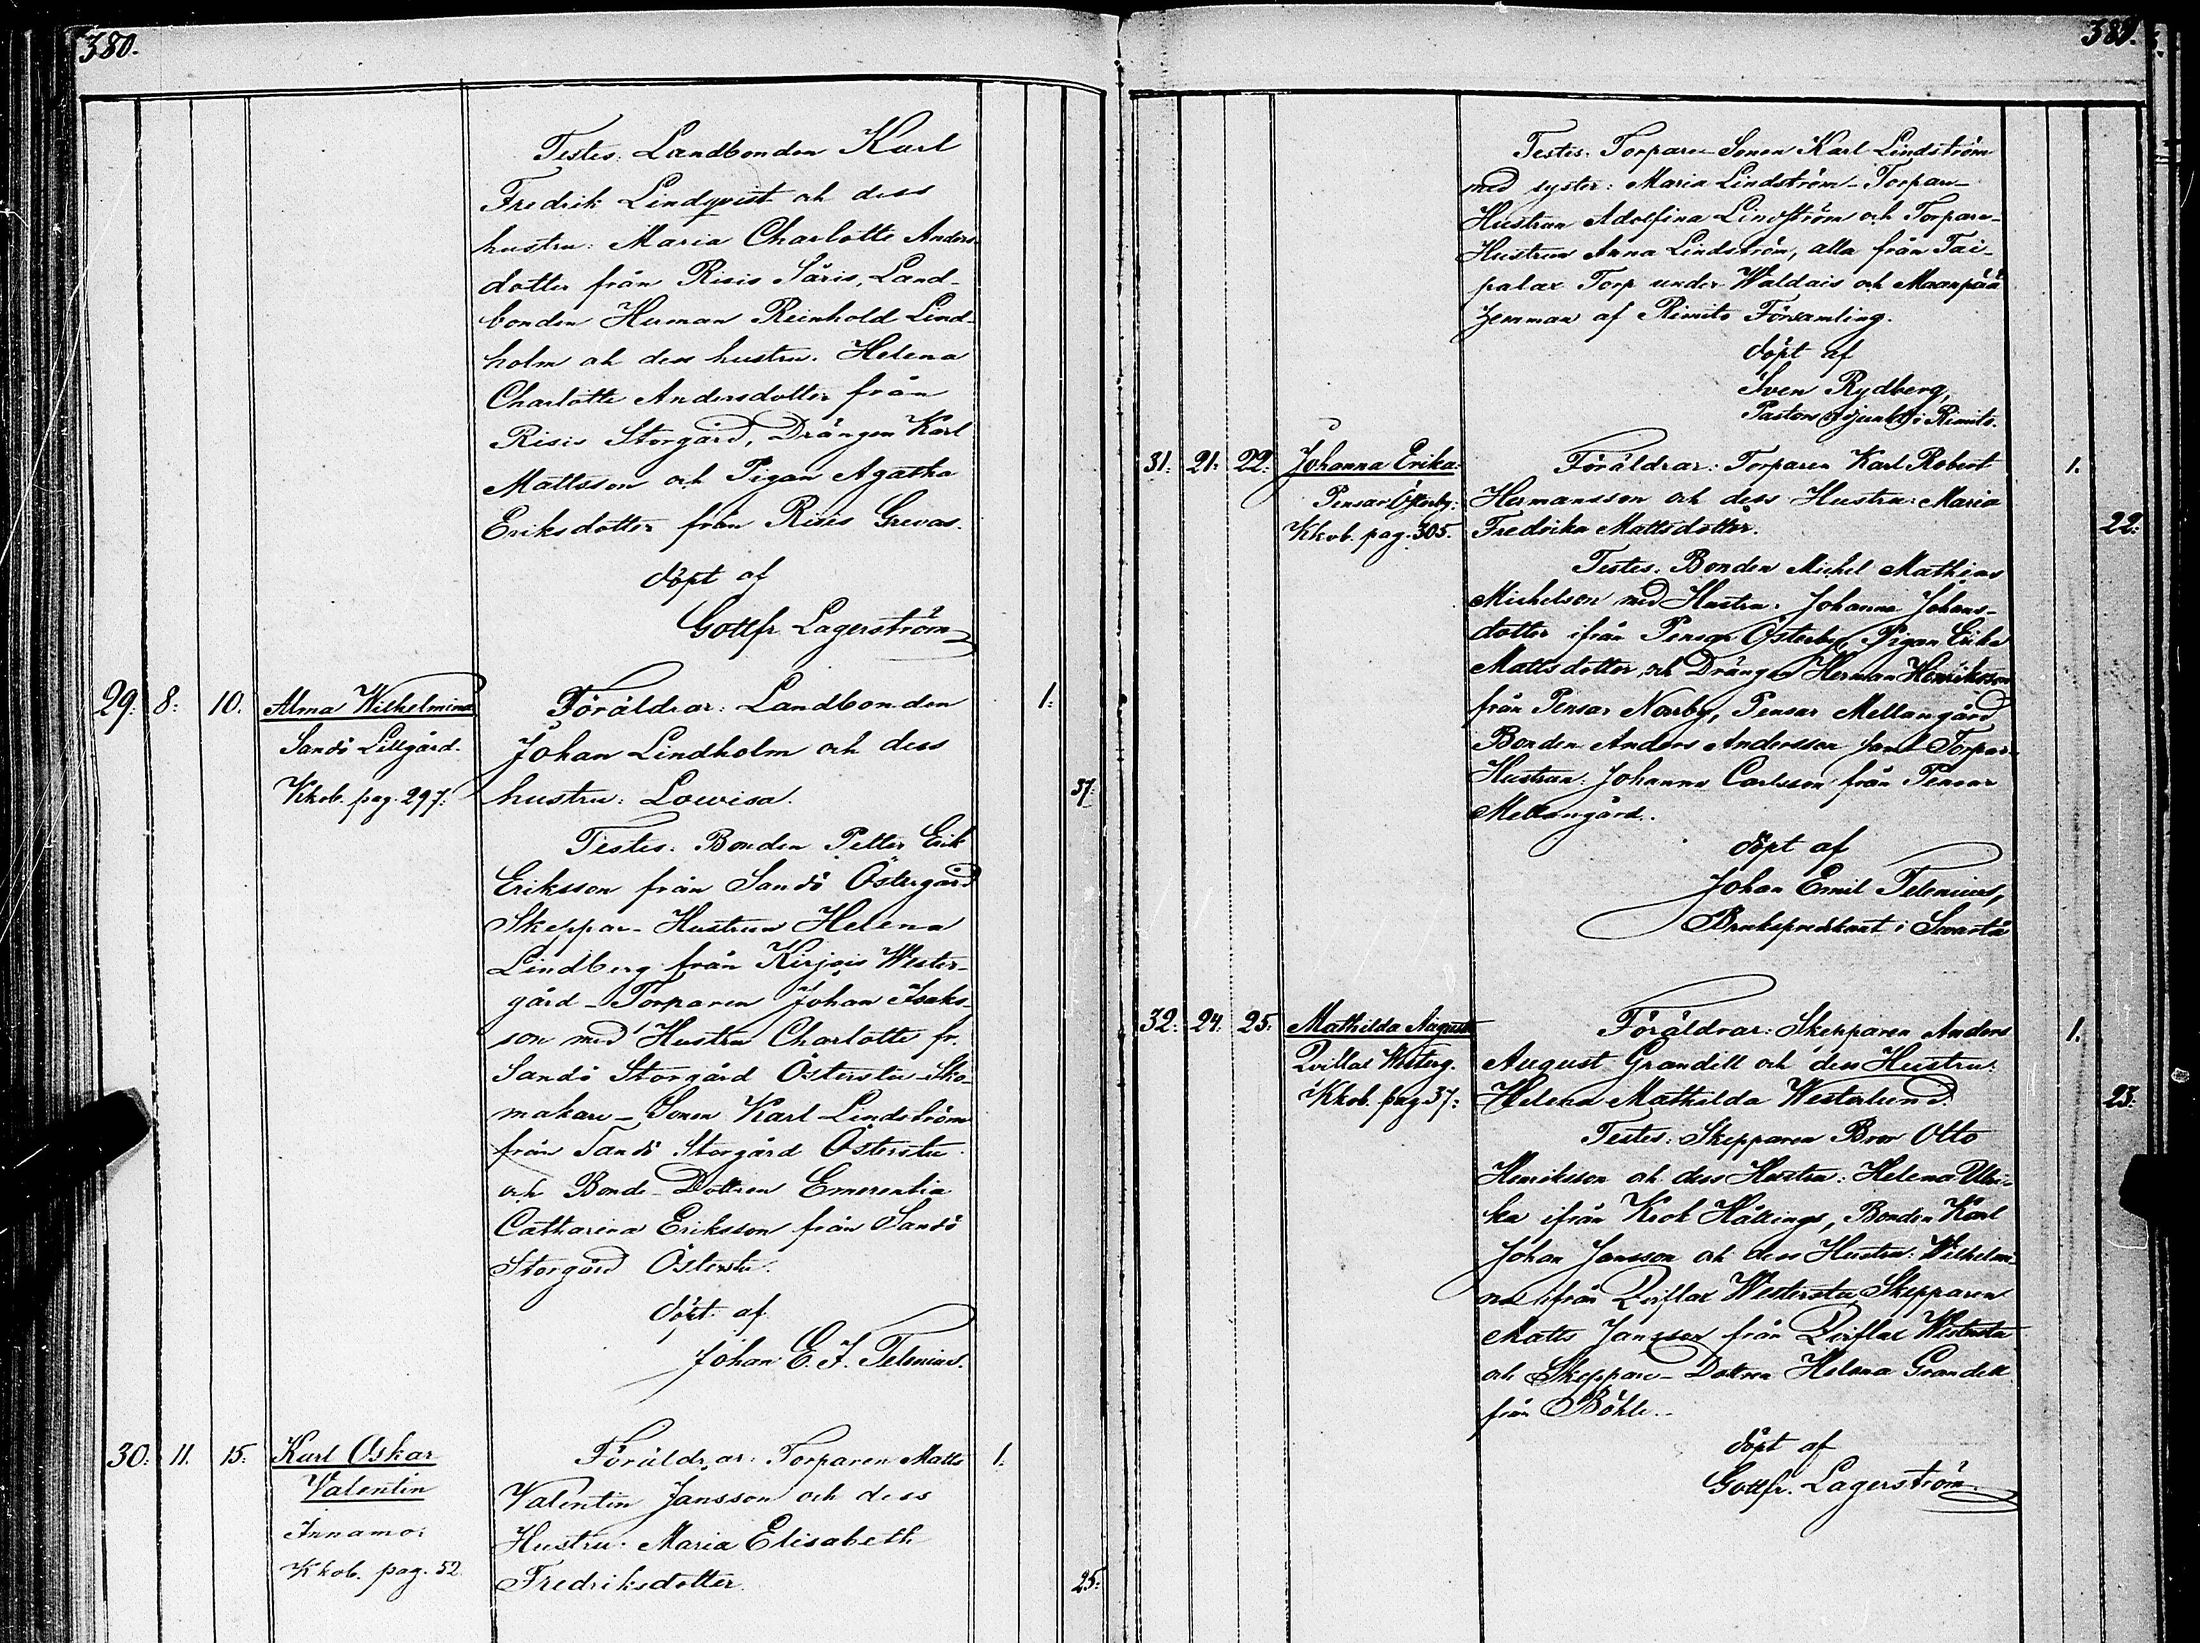 380.
Testes: Landbonden Karl
Fredrik Lindqvist och dess
hustru: Maria Charlotte Anders-
dotter från Risis Säris, Land-
bonden Herman Reinhold Lind-
holm och dess hustru: Helena
Charlotte Andersdotter från
Risis Storgård, Drängen Karl
Mattsson och Pigan Agatha
Eriksdotter från Risis Grevas.
döpt af
Gottfr. Lagerström
29. 8. 10. Alma Wilhelmina Föräldrar: Landbonden 1.
Sandö Lillgård. Johan Lindholm och dess
Kkob. pag. 297. hustru: Lowisa. 37.
Testes: Bonden Petter Erik
Eriksson från Sandö Östergård
Skeppar-Hustrun Helena
Lindberg från Kirjais Wester-
gård - Torparen Johan Isaks-
son med Hustru Charlotte fr.
Sandö Storgård Österstu - Sko-
makare-Sonen Karl Lindström
från Sandö Storgård Österstu
och Bonde-Dottren Emerentia
Catharina Eriksson från Sandö
Storgård Österstu.
döpt af
Johan E. F. Telenius.
30. 11. 15. Karl Oskar Föräldrar: Torparen Matts 1.
Valentin Valentin Jansson och dess
Innamo: Hustru: Maria Elisabeth
Kkob. pag. 52. Fredriksdotter. 25.
381.
Testes: Torpare-Sonen Karl Lindström
med syster: Maria Lindström - Torpare-
Hustrun Adolfina Lindström och Torpare-
Hustrun Anna Lindström, alla från Tai-
palax Torp under Waldais och Maanpää
hemman af Rimito Församling.
döpt af
Sven Rydberg,
Pastors Adjunkt i Rimito.
31. 21. 22. Johanna Erika: Föräldrar: Torparen Karl Robert 1.
Pensar Österby: Hermansson och dess Hustru: Maria
Kkob. pag. 305. Fredrika Mattsdotter. 22.
Testes: Bonden Michel Mathias
Michelson med Hustru: Johanna Johans-
dotter ifrån Pensar Österby, Pigan Erika
Mattsdotter, och Drängen Herman Henriksson
från Pensar Norrby, Pensar Mellangård
Bonden Anders Andersson samt Torpar-
Hustrun: Johanna Carlsson från Pensar
Mellangård.
döpt af
Johan Emil Telenius,
Brukspredikant i Swartå
32. 24. 25. Mathilda Augusta Föräldrar: Skepparen Anders 1.
Westerg. August Grandell och dess Hustru:
Kkob. pag 37: Helena Mathilda Westerlund. 23.
Testes: Skepparen Bror Otto
Henriksson och dess Hustru: Helena Ulri-
ka ifrån Krok Hällings, Bonden Karl
Johan Jansson och dess Hustru: Wilhelmi-
na ifrån Qviflax Westerstu, Skepparen
Matts Jansson från Qviflax Westerstu
och Skeppare-Dottren Helena Grandell
från Böhle.
döpt af
Gottfr. Lagerström.